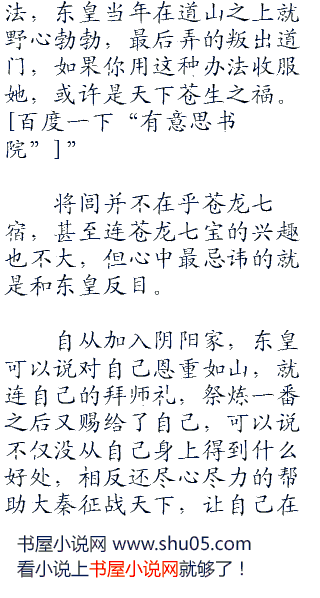 法，东皇当年在道山之上就
野心勃勃，最后弄的叛出道
门，如果你用这种办法收服
她，或许是天下苍生之福。
[百度一下“有意思书
院”]”
将闾并不在乎苍龙七
宿，甚至连苍龙七宝的兴趣
也不大，但心中最忌讳的就
是和东皇反目。
自从加入阴阳家，东皇
可以说对自己恩重如山，就
连自己的拜师礼，祭炼一番
之后又赐给了自己，可以说
不仅没从自己身上得到什么
好处，相反还尽心尽力的帮
助大秦征战天下，让自己在
书屋小说网 www.shu05.com
看小说上书屋小说网就够了！